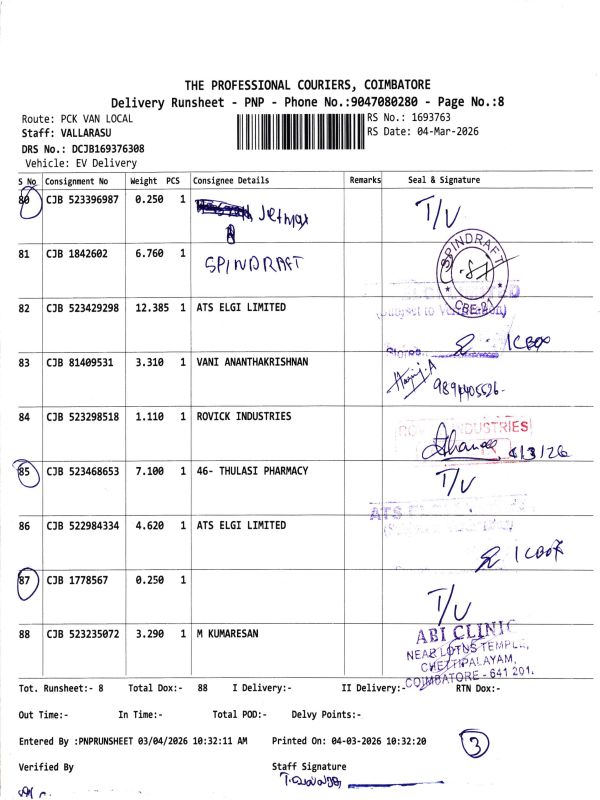 THE PROFESSIONAL COURIERS, COIMBATORE
Delivery Runsheet - PNP - Phone No.:9047080280 - Page No.:8
Route: PCK VAN LOCAL
RS No.: 1693763
Staff: VALLARASU
RS Date: 04-Mar-2026
DRS No.: DCJB169376308
Vehicle: EV Delivery
S No Consignment No Weight PCS Consignee Details Remarks Seal & Signature
80 CJB 523396987 0.250 1 Jetmax T/V
81 CJB 1842602 6.760 1 SPINDRAFT SPINDRAFT CBE-21
82 CJB 523429298 12.385 1 ATS ELGI LIMITED
1 CBOX
83 CJB 81409531 3.310 1 VANI ANANTHAKRISHNAN
84 CJB 523298518 1.110 1 ROVICK INDUSTRIES
4/3/26
85 CJB 523468653 7.100 1 46- THULASI PHARMACY T/V
86 CJB 522984334 4.620 1 ATS ELGI LIMITED ATS
1 CBOX
87 CJB 1778567 0.250 1 T/V
88 CJB 523235072 3.290 1 M KUMARESAN ABI CLINIC
NEAR LOTUS TEMPLE,
CHETTIPALAYAM,
COIMBATORE - 641 201.
Tot. Runsheet:- 8 Total Dox:- 88 I Delivery:- II Delivery:- RTN Dox:-
Out Time:- In Time:- Total POD:- Delvy Points:-
Entered By :PNPRUNSHEET 03/04/2026 10:32:11 AM Printed On: 04-03-2026 10:32:20 3
Verified By Staff Signature